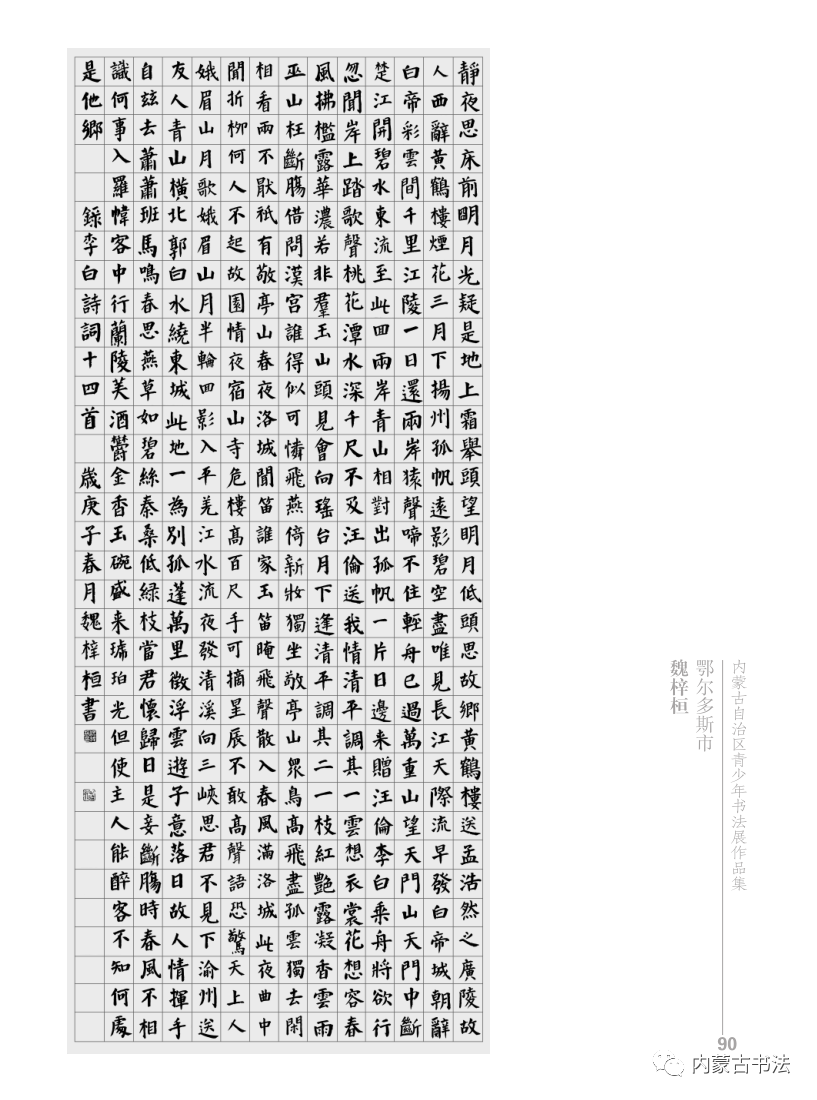 靜夜思床前明月光疑是地上霜舉頭望明月低頭思故鄉黃鶴樓送孟浩然之廣陵故
人西辭黃鶴樓煙花三月下揚州孤帆遠影碧空盡唯見長江天際流早發白帝城朝辭
白帝彩雲間千里江陵一日還兩岸猿聲啼不住輕舟已過萬重山望天門山天門中斷
楚江開碧水東流至此四兩岸青山相對出孤帆一片日邊来贈汪倫李白乘舟將欲行
忽聞岸上踏歌聲桃花潭水深千尺不及汪倫送我情清平調其一雲想衣裳花想容春
風拂檻露華濃若非羣玉山頭見會向瑤台月下逢清平調其二一枝紅艷露凝香雲雨
巫山枉斷腸借問漢宮誰得似可憐飛燕倚新妝獨坐敬亭山眾鳥高飛盡孤雲獨去閑
相看兩不厭祇有敬亭山春夜洛城聞笛誰家玉笛暗飛聲散入春風滿洛城此夜曲中
聞折柳何人不起故園情夜宿山寺危樓高百尺手可摘星辰不敢高聲語恐驚天上人
娥眉山月歌娥眉山月半輪四影入平羌江水流夜發清溪向三峽思君不見下渝州送
友人青山橫北郭白水繞東城此地一為別孤蓬萬里徵浮雲遊子意落日故人情揮手
自茲去蕭蕭班馬鳴春思燕草如碧絲秦桑低綠枝當君懷歸日是妾斷腸時春風不相
識何事入羅幃客中行蘭陵美酒鬱金香玉碗盛来琥珀光但使主人能醉客不知何處
是他鄉 錄李白詩詞十四首 歲庚子春月魏梓桓書
内蒙古自治区青少年书法展作品集
鄂尔多斯市
魏梓桓
90
内蒙古书法